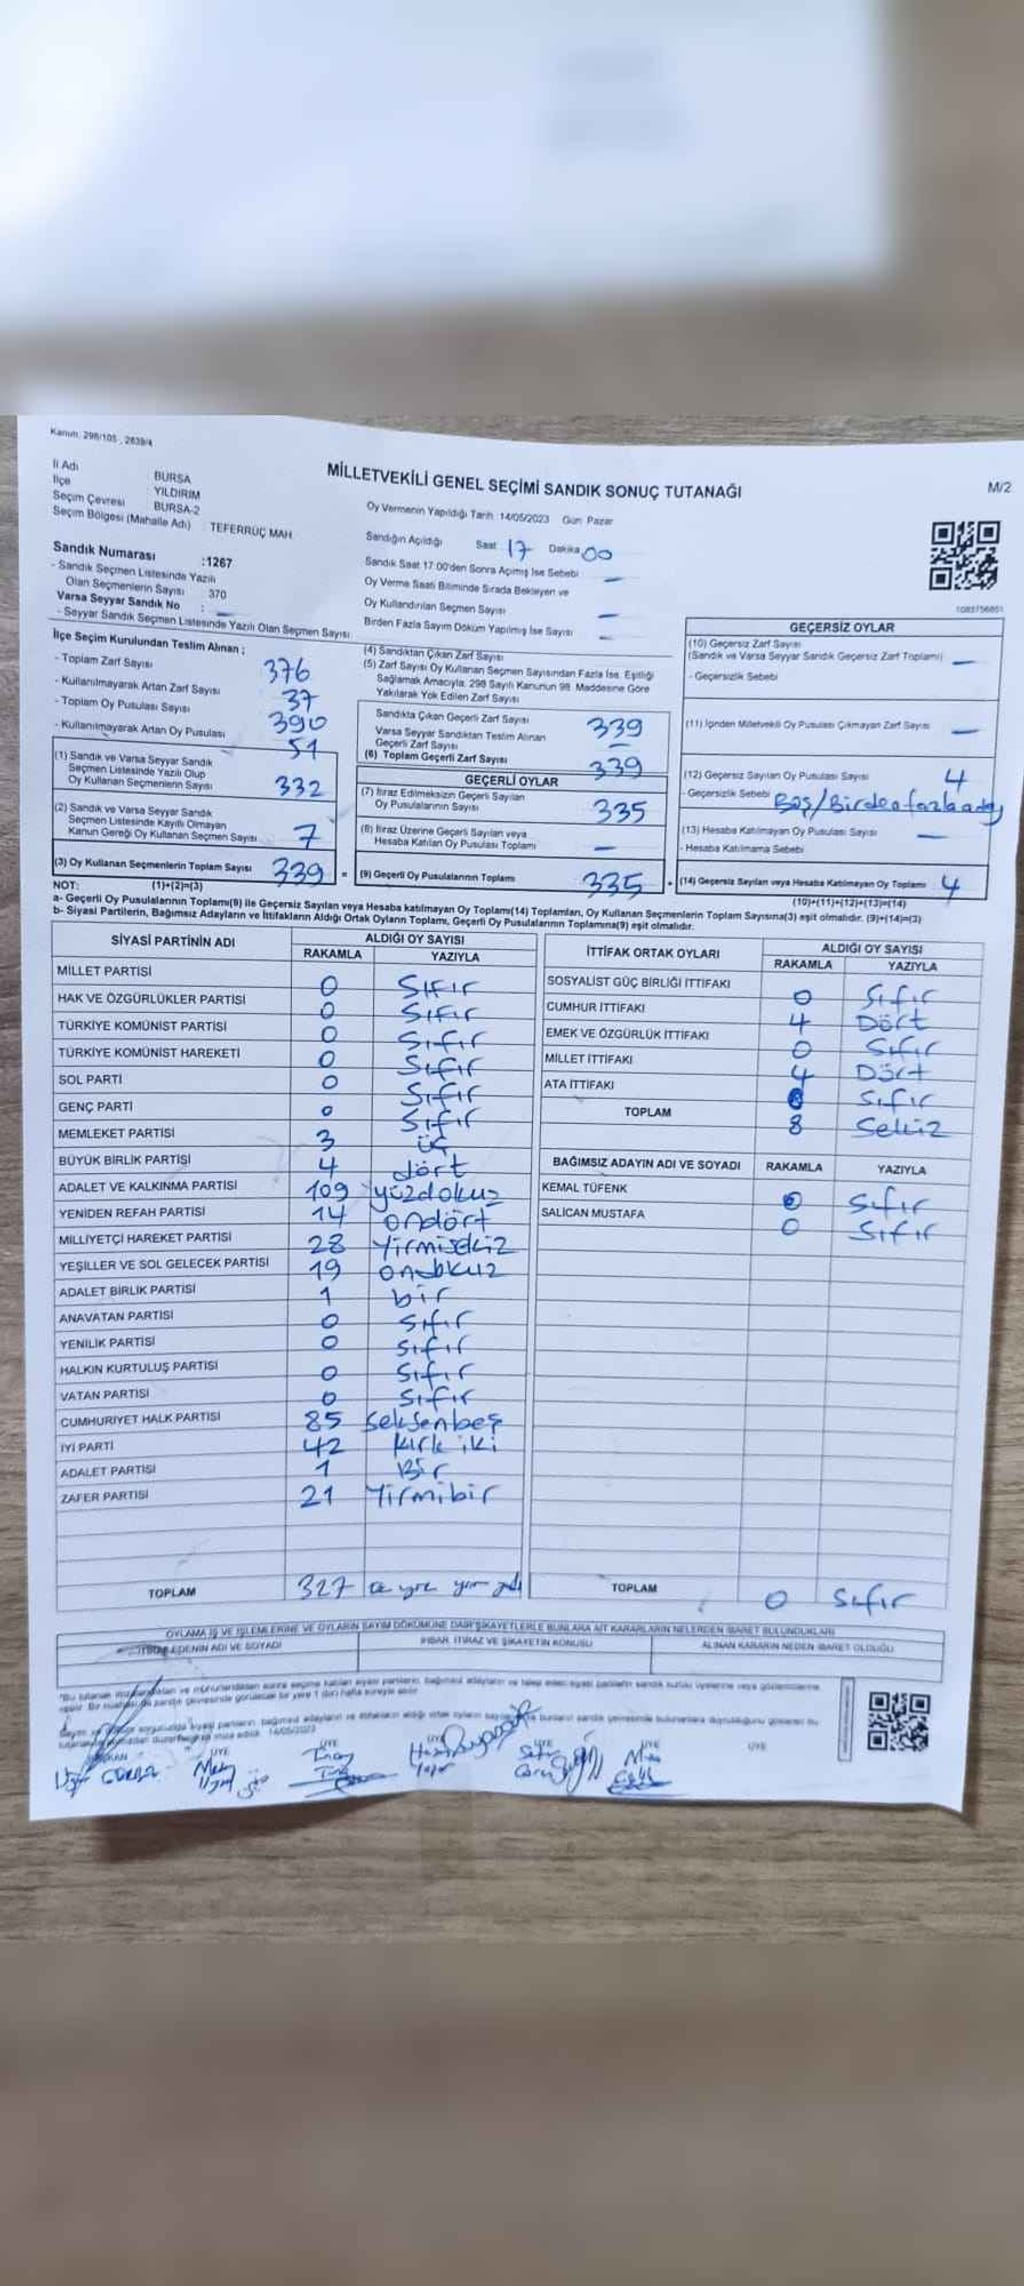 Kanun: 298/105 , 2839/4
İl Adı BURSA
İlçe YILDIRIM
Seçim Çevresi BURSA-2
Seçim Bölgesi (Mahalle Adı) : TEFERRÜÇ MAH
MİLLETVEKİLİ GENEL SEÇİMİ SANDIK SONUÇ TUTANAĞI
M/2
Oy Vermenin Yapıldığı Tarih :14/05/2023 Gün: Pazar
Sandığın Açıldığı Saat 17 Dakika 00
Sandık Saat 17:00'den Sonra Açılmış İse Sebebi —
Oy Verme Saati Bitiminde Sırada Bekleyen ve
Oy Kullandırılan Seçmen Sayısı —
Birden Fazla Sayım Döküm Yapılmış İse Sayısı —
Sandık Numarası :1267
- Sandık Seçmen Listesinde Yazılı
Olan Seçmenlerin Sayısı 370
Varsa Seyyar Sandık No : —
- Seyyar Sandık Seçmen Listesinde Yazılı Olan Seçmen Sayısı
İlçe Seçim Kurulundan Teslim Alınan ;
- Toplam Zarf Sayısı 376
- Kullanılmayarak Artan Zarf Sayısı 37
- Toplam Oy Pusulası Sayısı 390
- Kullanılmayarak Artan Oy Pusulası 51
(1) Sandık ve Varsa Seyyar Sandık
Seçmen Listesinde Yazılı Olup
Oy Kullanan Seçmenlerin Sayısı 332
(2) Sandık ve Varsa Seyyar Sandık
Seçmen Listesinde Kayıtlı Olmayan
Kanun Gereği Oy Kullanan Seçmen Sayısı 7
(3) Oy Kullanan Seçmenlerin Toplam Sayısı 339 =
(1)+(2)=(3)
(4) Sandıktan Çıkan Zarf Sayısı
(5) Zarf Sayısı Oy Kullanan Seçmen Sayısından Fazla İse, Eşitliği
Sağlamak Amacıyla, 298 Sayılı Kanunun 98. Maddesine Göre
Yakılarak Yok Edilen Zarf Sayısı
Sandıkta Çıkan Geçerli Zarf Sayısı 339
Varsa Seyyar Sandıktan Teslim Alınan
Geçerli Zarf Sayısı —
(6) Toplam Geçerli Zarf Sayısı 339
GEÇERLİ OYLAR
(7) İtiraz Edilmeksizin Geçerli Sayılan
Oy Pusulalarının Sayısı 335
(8) İtiraz Üzerine Geçerli Sayılan veya
Hesaba Katılan Oy Pusulası Toplamı —
(9) Geçerli Oy Pusulalarının Toplamı 335 +
1083756801
GEÇERSİZ OYLAR
(10) Geçersiz Zarf Sayısı
(Sandık ve Varsa Seyyar Sandık Geçersiz Zarf Toplamı) —
- Geçersizlik Sebebi
(11) İçinden Milletvekili Oy Pusulası Çıkmayan Zarf Sayısı —
(12) Geçersiz Sayılan Oy Pusulası Sayısı 4
- Geçersizlik Sebebi Boş/Birden fazla aday
(13) Hesaba Katılmayan Oy Pusulası Sayısı —
- Hesaba Katılmama Sebebi
(14) Geçersiz Sayılan veya Hesaba Katılmayan Oy Toplamı 4
(10)+(11)+(12)+(13)=(14)
NOT:
a- Geçerli Oy Pusulalarının Toplamı(9) ile Geçersiz Sayılan veya Hesaba katılmayan Oy Toplamı(14) Toplamları, Oy Kullanan Seçmenlerin Toplam Sayısına(3) eşit olmalıdır. (9)+(14)=(3)
b- Siyasi Partilerin, Bağımsız Adayların ve İttifakların Aldığı Ortak Oyların Toplamı, Geçerli Oy Pusulalarının Toplamına(9) eşit olmalıdır.
SİYASİ PARTİNİN ADI ALDIĞI OY SAYISI
RAKAMLA YAZIYLA
MİLLET PARTİSİ 0 Sıfır
HAK VE ÖZGÜRLÜKLER PARTİSİ 0 Sıfır
TÜRKİYE KOMÜNİST PARTİSİ 0 Sıfır
TÜRKİYE KOMÜNİST HAREKETİ 0 Sıfır
SOL PARTİ 0 Sıfır
GENÇ PARTİ 0 Sıfır
MEMLEKET PARTİSİ 3 üç
BÜYÜK BİRLİK PARTİSİ 4 dört
ADALET VE KALKINMA PARTİSİ 109 yüzdokuz
YENİDEN REFAH PARTİSİ 14 ondört
MİLLİYETÇİ HAREKET PARTİSİ 28 Yirmisekiz
YEŞİLLER VE SOL GELECEK PARTİSİ 19 ondokuz
ADALET BİRLİK PARTİSİ 1 bir
ANAVATAN PARTİSİ 0 Sıfır
YENİLİK PARTİSİ 0 Sıfır
HALKIN KURTULUŞ PARTİSİ 0 Sıfır
VATAN PARTİSİ 0 Sıfır
CUMHURİYET HALK PARTİSİ 85 Seksenbeş
İYİ PARTİ 42 Kırk iki
ADALET PARTİSİ 1 Bir
ZAFER PARTİSİ 21 Yirmibir
TOPLAM 327
İTTİFAK ORTAK OYLARI ALDIĞI OY SAYISI
RAKAMLA YAZIYLA
SOSYALİST GÜÇ BİRLİĞİ İTTİFAKI 0 Sıfır
CUMHUR İTTİFAKI 4 Dört
EMEK VE ÖZGÜRLÜK İTTİFAKI 0 Sıfır
MİLLET İTTİFAKI 4 Dört
ATA İTTİFAKI 0 Sıfır
TOPLAM 8 Sekiz
BAĞIMSIZ ADAYIN ADI VE SOYADI RAKAMLA YAZIYLA
KEMAL TÜFENK 0 Sıfır
SALİCAN MUSTAFA 0 Sıfır
TOPLAM 0 Sıfır
OYLAMA İŞ VE İŞLEMLERİNE VE OYLARIN SAYIM DÖKÜMÜNE DAİR ŞİKAYETLERLE BUNLARA AİT KARARLARIN NELERDEN İBARET BULUNDUKLARI
EDENİN ADI VE SOYADI İHBAR, İTİRAZ VE ŞİKAYETİN KONUSU ALINAN KARARIN NEDEN İBARET OLDUĞU
14/05/2023
ÜYE ÜYE ÜYE ÜYE ÜYE ÜYE